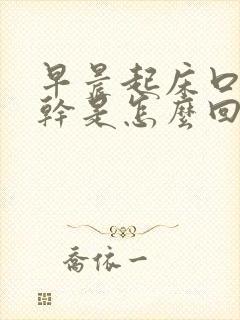 早晨起床口
幹是怎麼回
喬依一